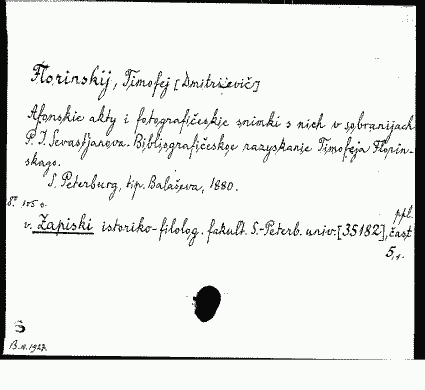 Florinskij, Timofej [Dmitrijevič]
Afonskie akty i fotografičeskie snimki s nich v sobranijach
P. I. Sevast'janova. Bibliografičeskoe razyskanie Timofeja Florin-
skago.
S. Peterburg, tip. Balaševa, 1880.
8° 105 s.
ppl.
v. Zapiski istoriko-filolog. fakult. S.-Peterb. univ. [35182], čast
5,1.
S